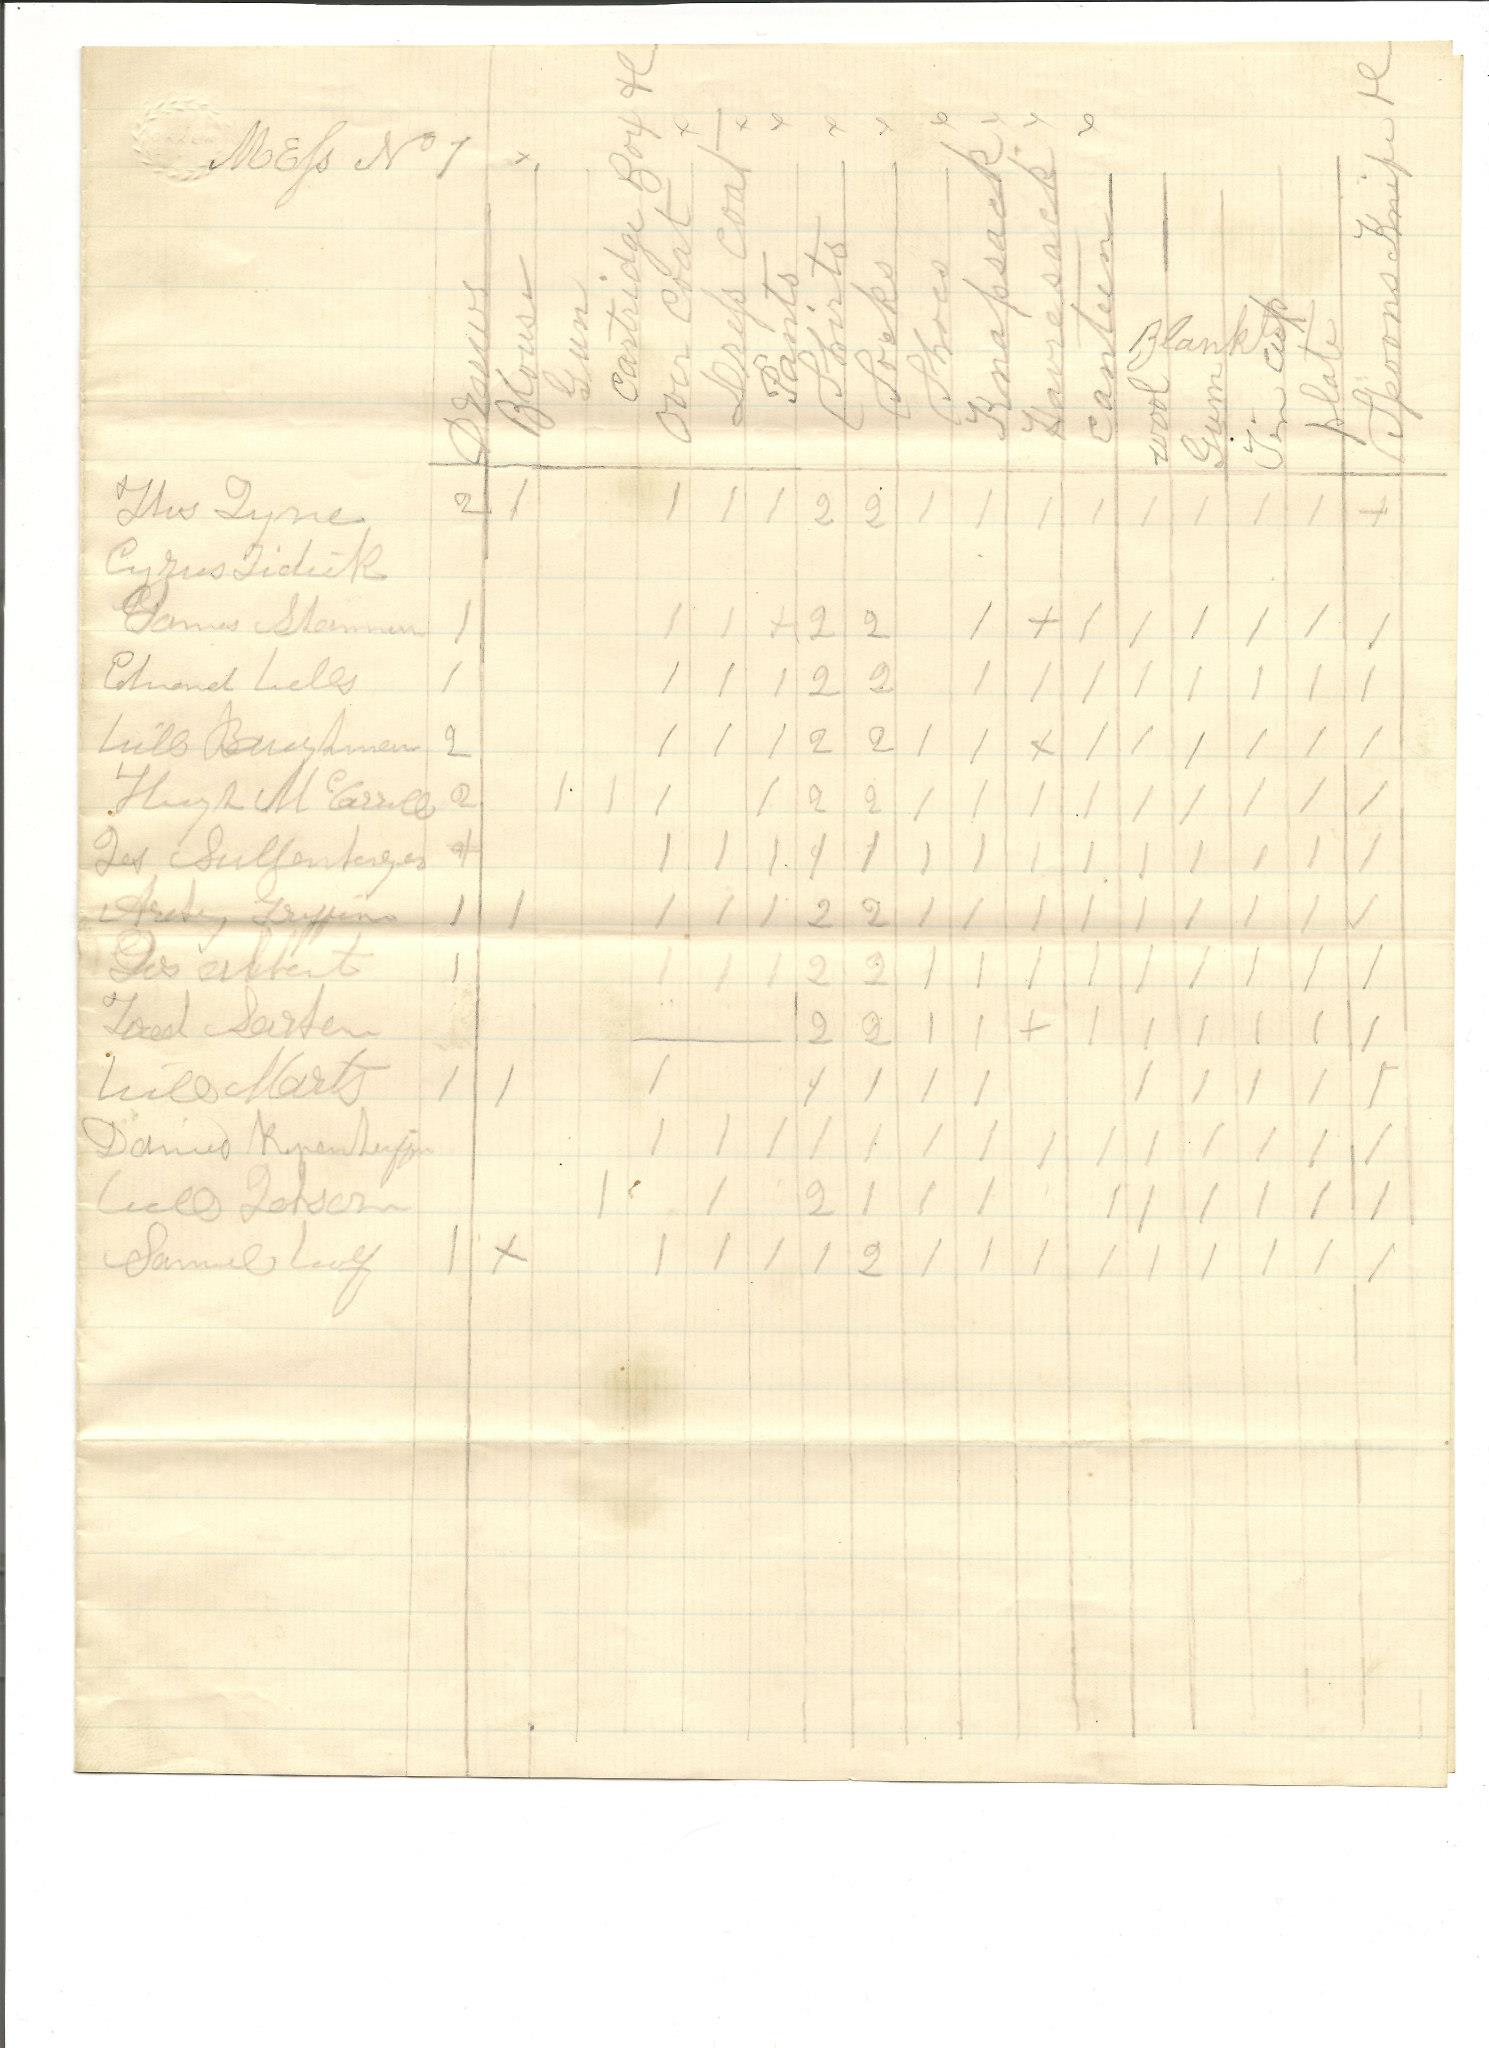 MESs No 1
Draws
Blouse
Gun
Cartridge Box &c
Over Coat
Dress Coat
Pants
Shirts
Socks
Shoes
Knapsack
Havresack
Canteen
Blank
wool
Gum
Tin cup
plate
Spoons Knife &c
Thos 2 1 1 1 1 2 2 1 1 1 1 1 1 1 1 +
Cyrus
James 1 1 1 + 2 2 1 + 1 1 1 1 1 1
Edward 1 1 1 1 2 2 1 1 1 1 1 1 1 1
Will Baughman 2 1 1 1 2 2 1 1 + 1 1 1 1 1 1
Hugh McCarrell 2 1 1 1 1 2 2 1 1 1 1 1 1 1 1 1
1 1 1 1 1 1 1 1 1 1 1 1 1 1
1 1 1 1 1 2 2 1 1 1 1 1 1 1 1 1
Albert 1 1 1 1 2 2 1 1 1 1 1 1 1 1 1
2 2 1 1 + 1 1 1 1 1 1
Will Marts 1 1 1 1 1 1 1 1 1 1 1 1
Daniel 1 1 1 1 1 1 1 1 1 1 1 1 1 1
Will 1 1 2 1 1 1 1 1 1 1 1 1
Samuel Wolf 1 + 1 1 1 1 2 1 1 1 1 1 1 1 1 1